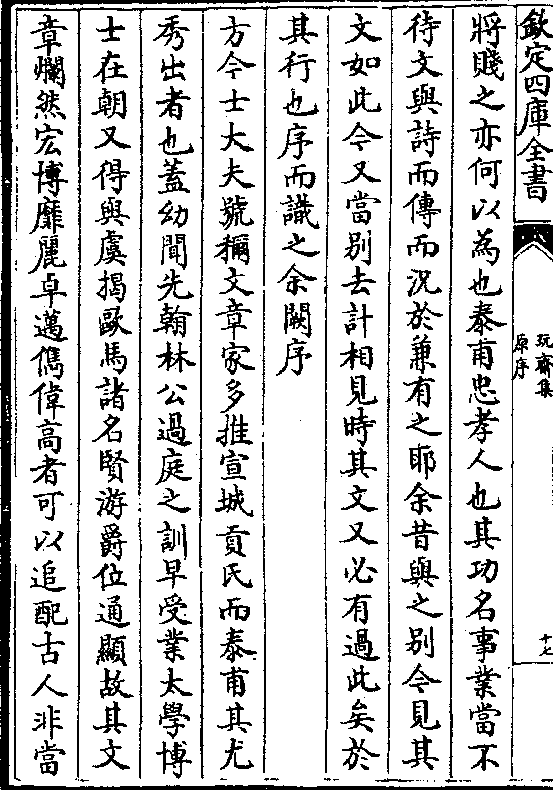 欽定四庫全書
玩齋集
原序
十七
將賤之亦何以為也泰甫忠孝人也其功名事業當不
待文與詩而傳而況於兼有之耶余昔與之别今見其
文如此今又當别去計相見時其文又必有過此矣於
其行也序而識之余闕序
方今士大夫號稱文章家多推宣城貢氏而泰甫其尤
秀出者也蓋幼聞先翰林公過庭之訓早受業太學博
士在朝又得與虞揭歐馬諸名賢游爵位通顯故其文
章爛然宏博靡麗卓邁儁偉高者可以追配古人非當